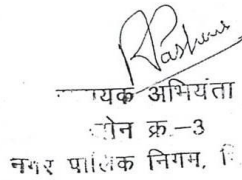 यक अभियंता
ोन क्र.–3
नगर पालिक निगम,